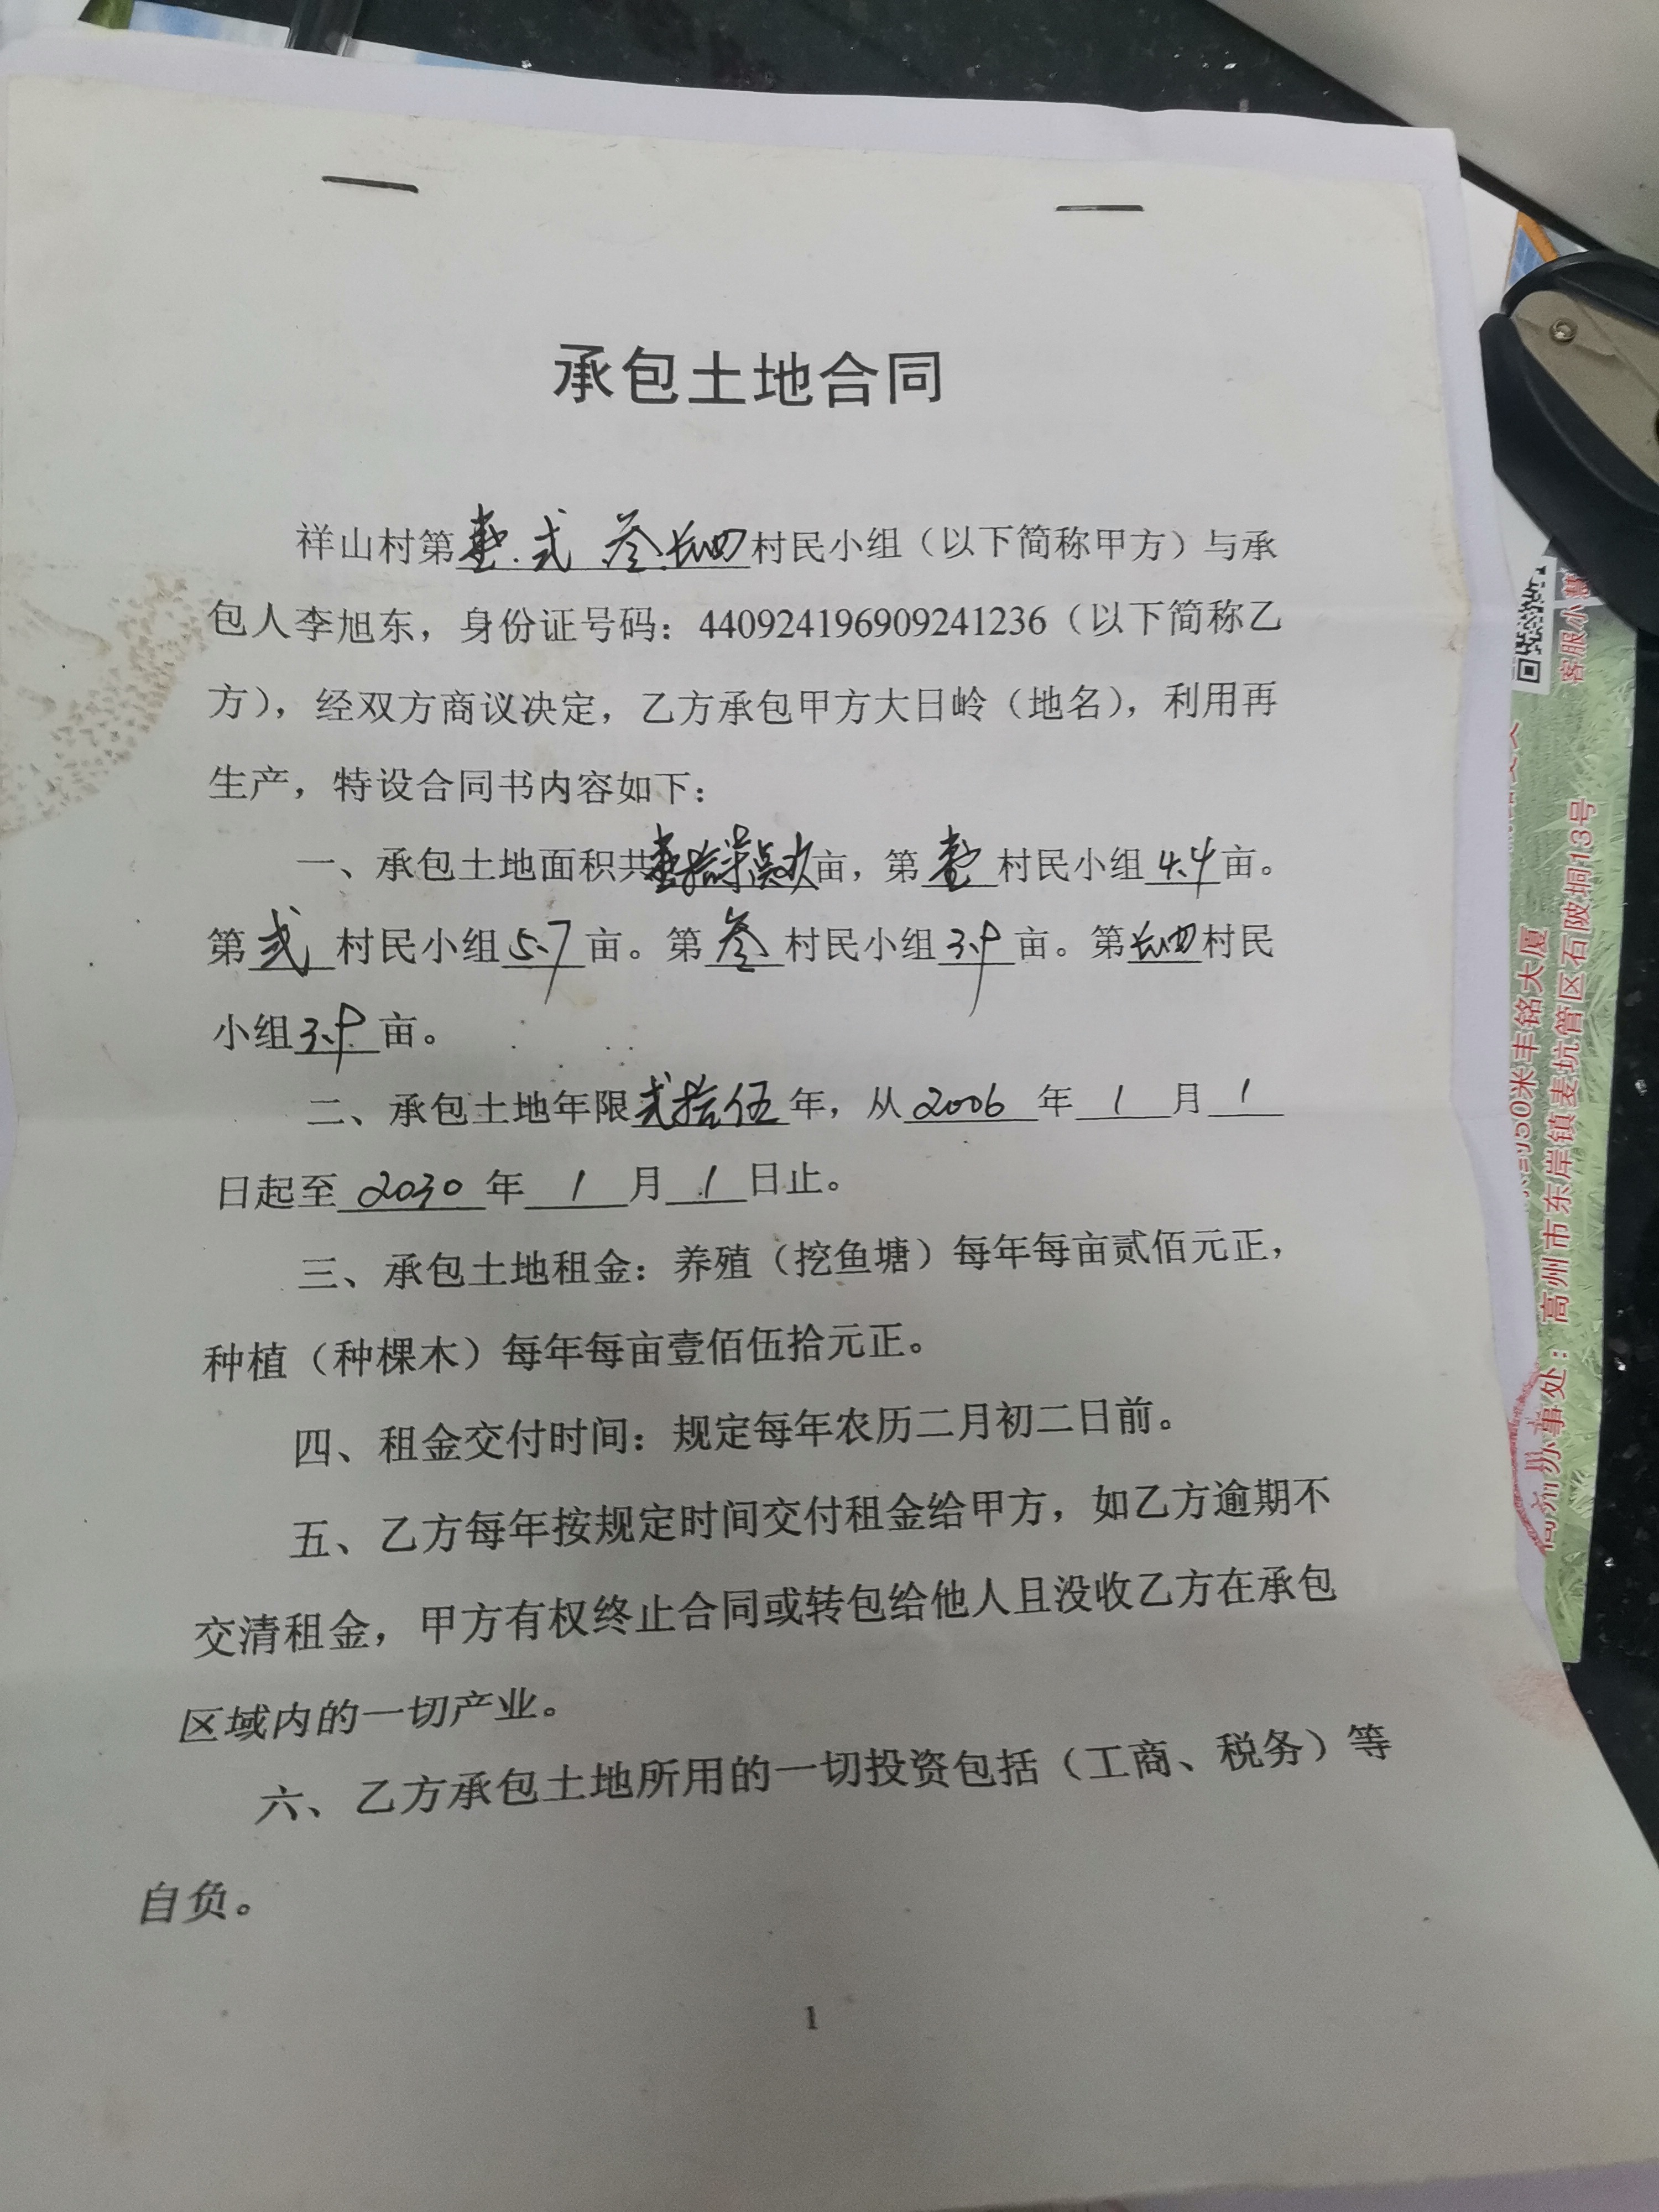 承包土地合同
祥山村第壹.弍 叁.长四村民小组（以下简称甲方）与承
包人李旭东，身份证号码：440924196909241236（以下简称乙
方），经双方商议决定，乙方承包甲方大日岭（地名），利用再
生产，特设合同书内容如下：
一、承包土地面积共壹拾柒点九亩，第壹村民小组4.4亩。
第弍村民小组5.7亩。第叁村民小组3.9亩。第长四村民
小组3.9亩。
二、承包土地年限弍拾伍年，从2006年1月1
日起至2030年1月1日止。
三、承包土地租金：养殖（挖鱼塘）每年每亩贰佰元正，
种植（种棵木）每年每亩壹佰伍拾元正。
四、租金交付时间：规定每年农历二月初二日前。
五、乙方每年按规定时间交付租金给甲方，如乙方逾期不
交清租金，甲方有权终止合同或转包给他人且没收乙方在承包
区域内的一切产业。
六、乙方承包土地所用的一切投资包括（工商、税务）等
自负。
1
客服小慧
50米丰铭大厦
高州办事处：高州市东岸镇麦坑管区石陂垌13号